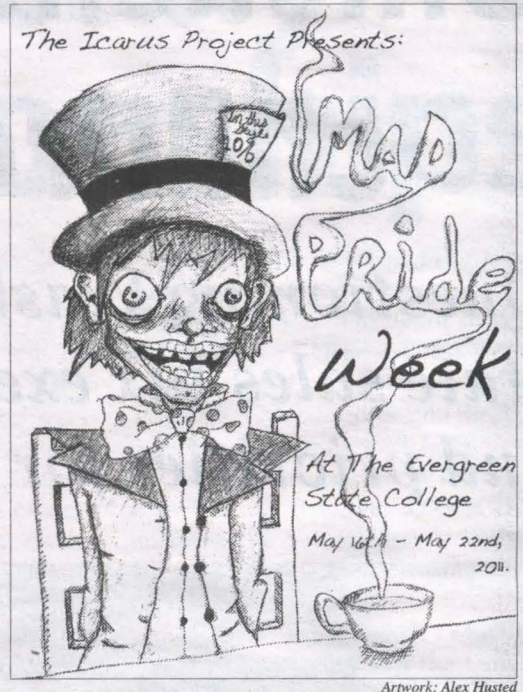 The Icarus Project Presents:
In this
Style
10/6
Mad
Pride
Week
At The Evergreen
State College
May 16th - May 22nd,
2011.
Artwork: Alex Husted